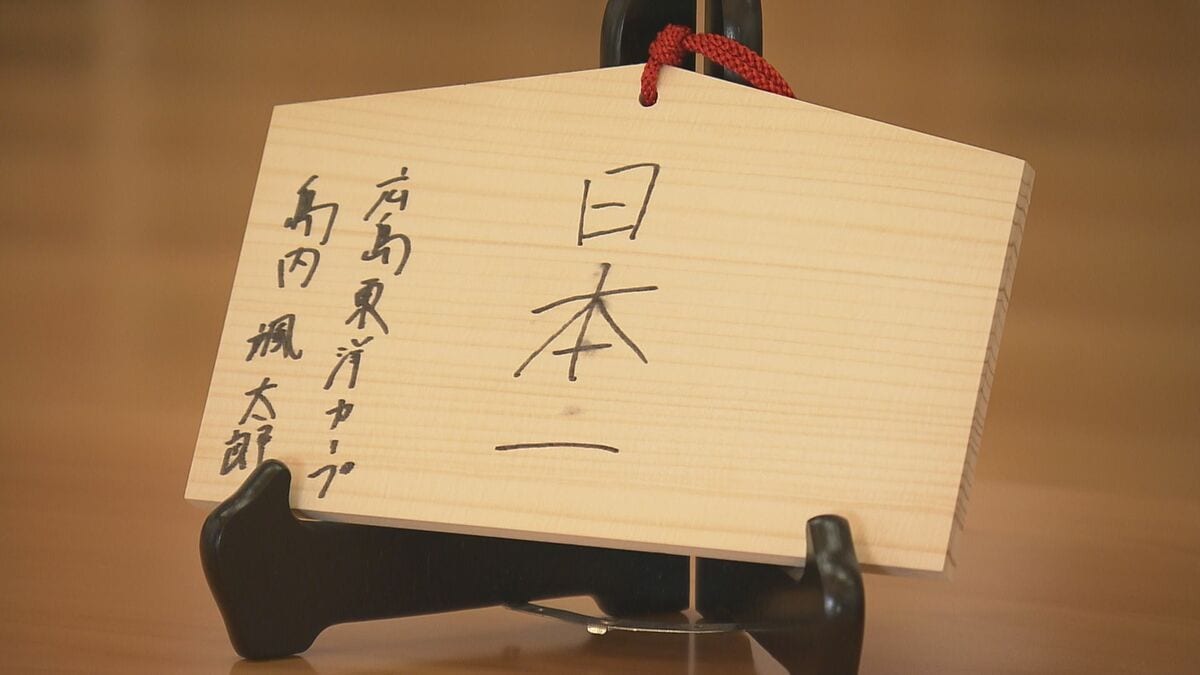 日本一
広島東洋カープ
島内颯太郎